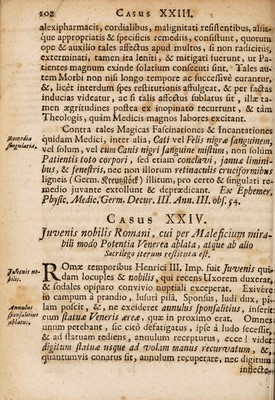 202 CASUS XXIII.
alexipharmacis, cordialibus, malignitati resistentibus, aliis-
que appropriatis & specificis remediis, consistunt, quorum
ope & auxilio tales affectus apud multos, si non radicitus,
exterminati, tamen ita leniti, & mitigati fuerunt, ut Pa-
tientes magnum exinde solatium consecuti sint. Tales au-
tem Morbi non nisi longo tempore ac successivè curantur,
&, licèt interdum spes restitutionis affulgeat, & per factas
inducias videatur, ac si talis affectus sublatus sit, illæ ta-
men ægritudines postea ex inopinato recurrunt, & tàm
Theologis, quàm Medicis magnos labores excitant.
Contra tales Magicas Fascinationes & Incantationes
Remedia singularia.
quidam Medici, inter alia, Cati vel Felis nigræ sanguinem,
vel solum, vel cum Canis nigri sanguine mistum, non solum
Patientis toto corpori, sed etiam conclavi, januæ limini-
bus, & fenestris, nec non illorum retinaculis cruciformibus
ligneis (Germ. Creutzholtz) illitum, pro certo & singulari re-
medio juvante extollunt & deprædicant. Ex Ephemer.
Physic. Medic. Germ. Decur. III. Ann. III. obs. 54.
CASUS XXIV.
Juvenis nobilis Romani, cui per Maleficium mira-
bili modo Potentia Venerea ablata, atque ab alio
Sacrilego iterum restituta est.
Juvenis nobilis.
ROmæ temporibus Henrici III. Imp. fuit Juvenis qui-
dam locuples & nobilis, qui recens Uxorem duxerat,
& sodales opiparo convivio nuptiali exceperat. Exivère
in campum à prandio, lusuri pilâ. Sponsus, ludi dux, pi-
lam poscit, &, ne excideret annulus sponsalitius, inserit
Annulus sponsalitius ablatus.
eum statuæ Veneris æreæ, quæ in proximo erat. Omnes
unum petebant, sic citò defatigatus, ipse à ludo secessit,
& ad statuam rediens, annulum recepturus, ecce! videt
digitum statuæ usque ad volam manus recurvatum, &,
quantumvis conatus sit, annulum recuperare, nec digitum
inflecte-